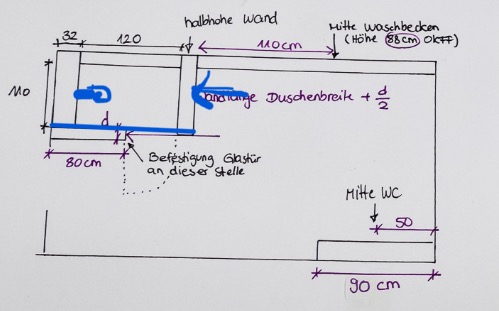 halbhohe Wand
Mitte Waschbecken
(Höhe 88cm OKFF)
32
120
110cm
110
Wandlänge Duschenbreite + d/2
d
80cm
Befestigung Glastür
an dieser Stelle
Mitte WC
50
90 cm